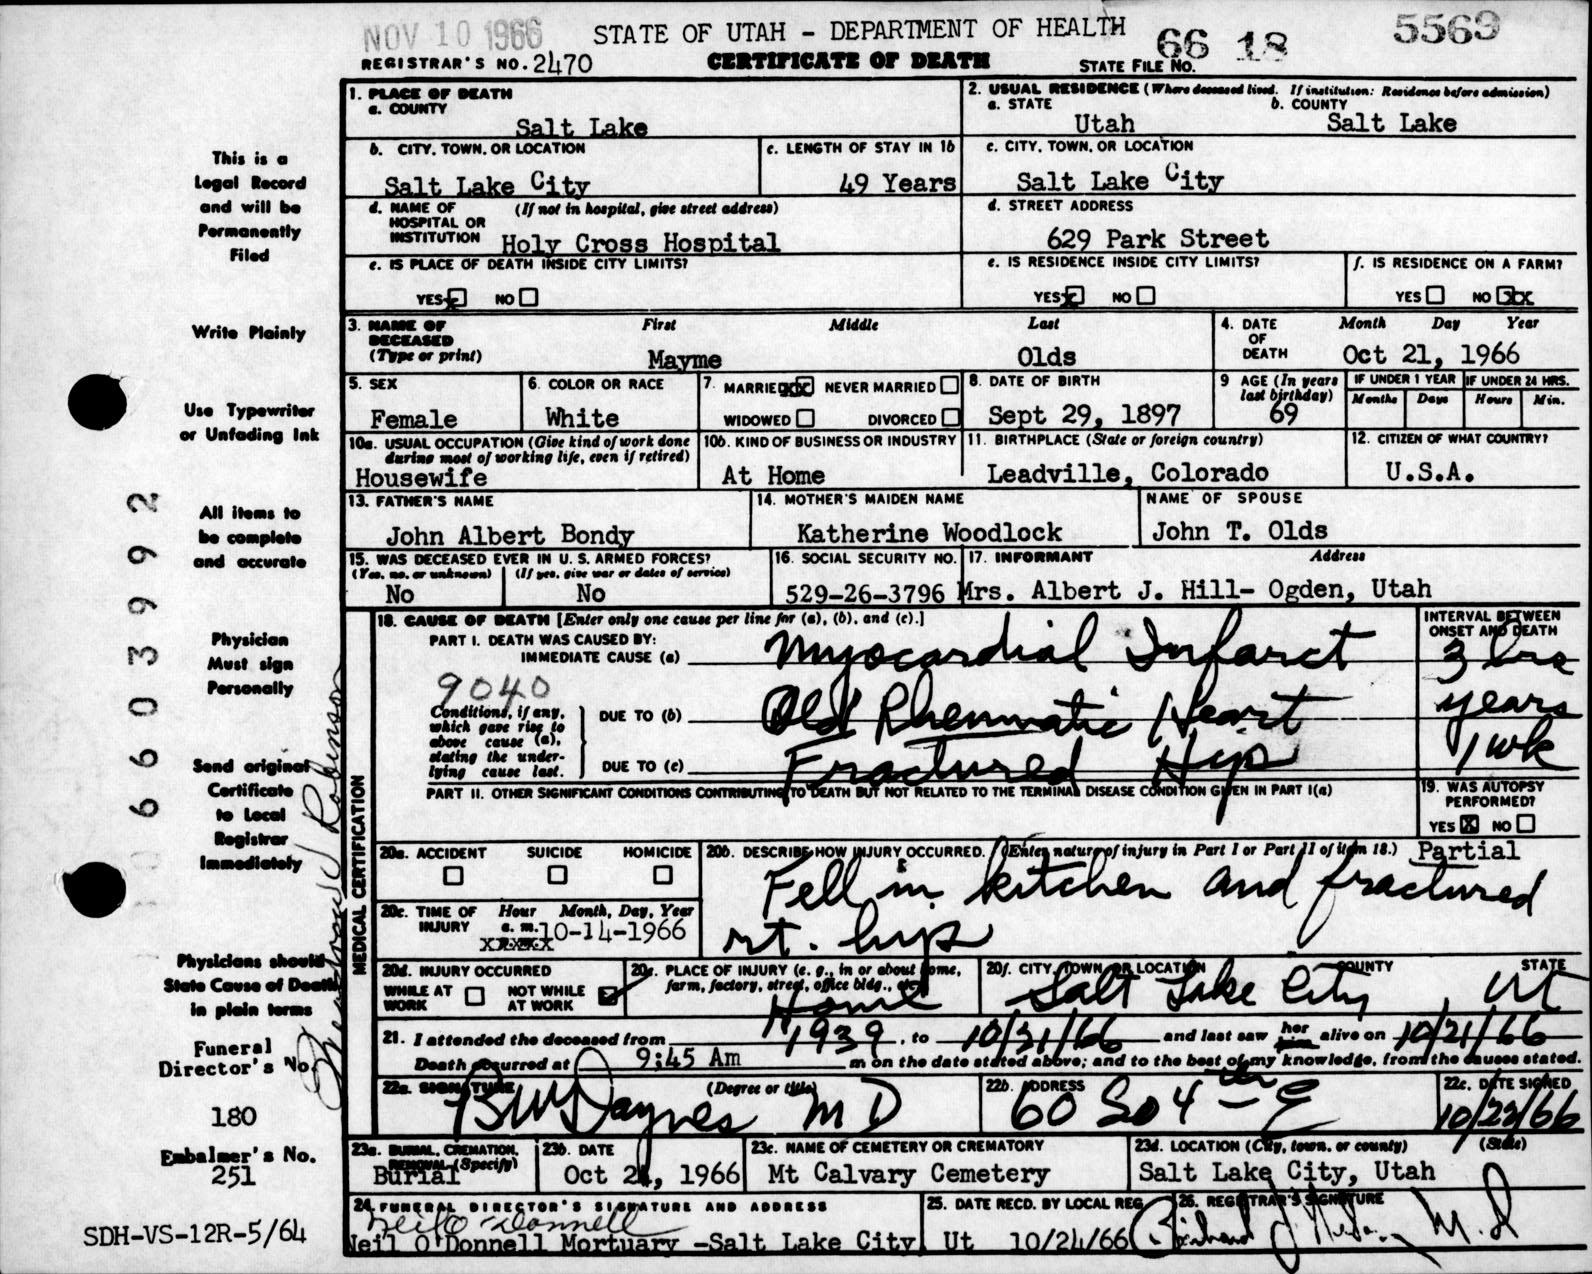 NOV 10 1966 STATE OF UTAH - DEPARTMENT OF HEALTH 66 18 5569
REGISTRAR'S NO. 2470 CERTIFICATE OF DEATH STATE FILE NO.
This is a
Legal Record
and will be
Permanently
Filed
Write Plainly
Use Typewriter
or Unfading Ink
All items to
be complete
and accurate
Physician
Must sign
Personally
Send original
Certificate
to Local
Registrar
Immediately
Physicians should
State Cause of Death
in plain terms
Funeral
Director's No.
180
Embalmer's No.
251
SDH-VS-12R-5/64
6603992
1. PLACE OF DEATH
a. COUNTY
Salt Lake
2. USUAL RESIDENCE (Where deceased lived. If institution: Residence before admission)
a. STATE b. COUNTY
Utah Salt Lake
b. CITY, TOWN, OR LOCATION c. LENGTH OF STAY IN 1b
Salt Lake City 49 Years
c. CITY, TOWN, OR LOCATION
Salt Lake City
d. NAME OF (If not in hospital, give street address)
HOSPITAL OR
INSTITUTION Holy Cross Hospital
d. STREET ADDRESS
629 Park Street
e. IS PLACE OF DEATH INSIDE CITY LIMITS?
YES X NO
e. IS RESIDENCE INSIDE CITY LIMITS? f. IS RESIDENCE ON A FARM?
YES X NO YES NO XX
3. NAME OF First Middle Last
DECEASED
(Type or print) Mayme Olds
4. DATE Month Day Year
OF
DEATH Oct 21, 1966
5. SEX 6. COLOR OR RACE
Female White
7. MARRIED XX NEVER MARRIED
WIDOWED DIVORCED
8. DATE OF BIRTH
Sept 29, 1897
9 AGE (In years
last birthday)
69
IF UNDER 1 YEAR IF UNDER 24 HRS.
Months Days Hours Min.
10a. USUAL OCCUPATION (Give kind of work done
during most of working life, even if retired)
Housewife
10b. KIND OF BUSINESS OR INDUSTRY
At Home
11. BIRTHPLACE (State or foreign country)
Leadville, Colorado
12. CITIZEN OF WHAT COUNTRY?
U.S.A.
13. FATHER'S NAME 14. MOTHER'S MAIDEN NAME NAME OF SPOUSE
John Albert Bondy Katherine Woodlock John T. Olds
15. WAS DECEASED EVER IN U. S. ARMED FORCES? 16. SOCIAL SECURITY NO. 17. INFORMANT Address
(Yes, no, or unknown) (If yes, give war or dates of service)
No No 529-26-3796 Mrs. Albert J. Hill- Ogden, Utah
MEDICAL CERTIFICATION
18. CAUSE OF DEATH [Enter only one cause per line for (a), (b), and (c).] INTERVAL BETWEEN
ONSET AND DEATH
PART I. DEATH WAS CAUSED BY:
IMMEDIATE CAUSE (a) Myocardial Infarct 3 hrs
9040
Conditions, if any,
which gave rise to
above cause (a),
stating the under-
lying cause last.
DUE TO (b) Old Rheumatic Heart years
DUE TO (c) Fractured Hip 1 wk
PART II. OTHER SIGNIFICANT CONDITIONS CONTRIBUTING TO DEATH BUT NOT RELATED TO THE TERMINAL DISEASE CONDITION GIVEN IN PART I(a)
19. WAS AUTOPSY
PERFORMED?
YES X NO
Partial
20a. ACCIDENT SUICIDE HOMICIDE
20b. DESCRIBE HOW INJURY OCCURRED. (Enter nature of injury in Part I or Part II of item 18.)
Fell in kitchen and fractured
rt. hip
20c. TIME OF Hour Month, Day, Year
INJURY a. m. 10-14-1966
20d. INJURY OCCURRED
WHILE AT NOT WHILE
WORK AT WORK
20e. PLACE OF INJURY (e. g., in or about home,
farm, factory, street, office bldg., etc.)
Home
20f. CITY, TOWN OR LOCATION COUNTY STATE
Salt Lake City, Ut
21. I attended the deceased from 1939, to 10/31/66 and last saw her him alive on 10/21/66
Death occurred at 9:45 Am m on the date stated above; and to the best of my knowledge, from the causes stated.
22a. SIGNATURE (Degree or title) 22b. ADDRESS 22c. DATE SIGNED
BW Daynes MD 60 So 4th E 10/22/66
23a. BURIAL, CREMATION, 23b. DATE 23c. NAME OF CEMETERY OR CREMATORY 23d. LOCATION (City, town, or county) (State)
REMOVAL (Specify)
Burial Oct 24, 1966 Mt Calvary Cemetery Salt Lake City, Utah
24. FUNERAL DIRECTOR'S SIGNATURE AND ADDRESS 25. DATE RECD. BY LOCAL REG. 26. REGISTRAR'S SIGNATURE
Neil O'Donnell
Neil O'Donnell Mortuary -Salt Lake City, Ut 10/24/66 M.D